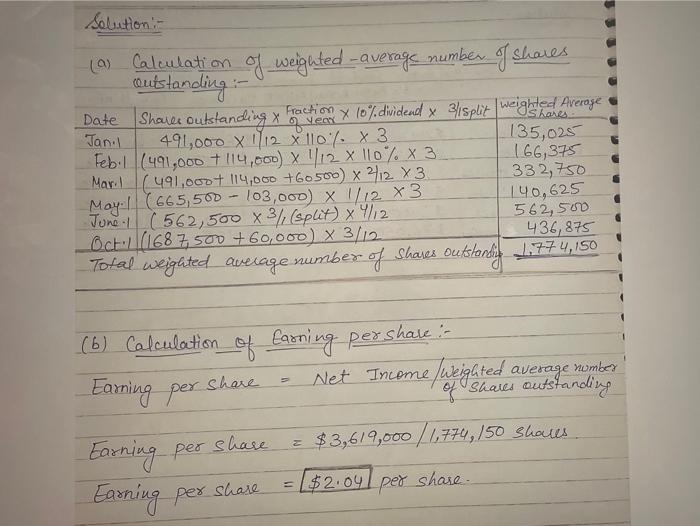 Solution:-
(a) Calculation of weighted-average number of shares
outstanding :-
Date Shares outstanding x Fraction of year x 10% dividend x 3/1split weighted Average Shares
Jan.1 491,000 X 1/12 X 110%. X 3 135,025
Feb.1 (491,000 + 114,000) X 1/12 X 110%. X 3 166,375
Mar.1 (491,000+ 114,000 +60500) X 2/12 X3 332,750
May.1 (665,500 - 103,000) X 1/12 X3 140,625
June.1 (562,500 X 3/1 (split) X 4/12 562,500
Oct.1 (1687,500 +60,000) X 3/12 436,875
Total weighted average number of shares outstanding 1,774,150
(b) Calculation of Earning per share :-
Earning per share = Net Income / Weighted average number
of shares outstanding
Earning per share = $3,619,000 / 1,774,150 shares.
Earning per share = $2.04 per share.